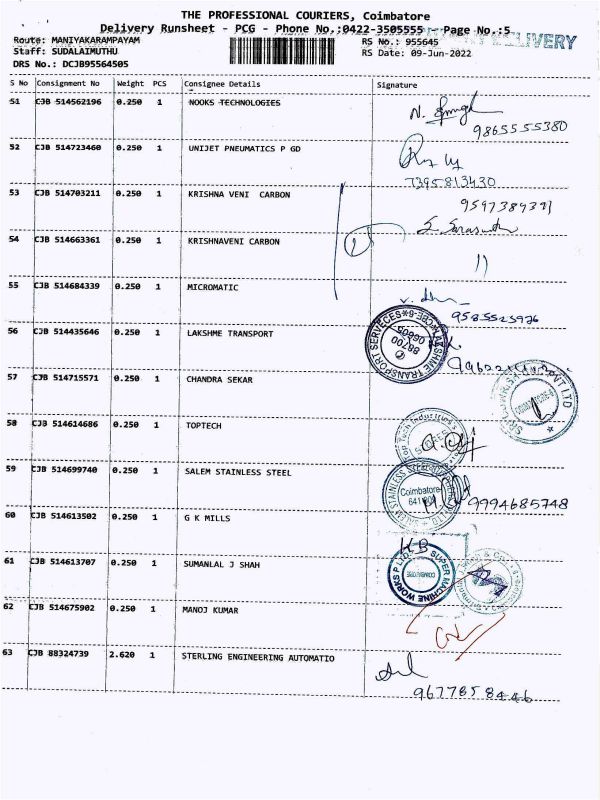 THE PROFESSIONAL COURIERS, Coimbatore
Delivery Runsheet - PCG - Phone No.:0422-3505555 - Page No.:5
DELIVERY
Route: MANIYAKARAMPAYAM RS No.: 955645
Staff: SUDALAIMUTHU RS Date: 09-Jun-2022
DRS No.: DCJB95564505
S No Consignment No Weight PCS Consignee Details Signature
51 CJB 514562196 0.250 1 NOOKS TECHNOLOGIES
9865555380
52 CJB 514723460 0.250 1 UNIJET PNEUMATICS P GD
7395813430
53 CJB 514703211 0.250 1 KRISHNA VENI CARBON
54 CJB 514663361 0.250 1 KRISHNAVENI CARBON
55 CJB 514684339 0.250 1 MICROMATIC
56 CJB 514435646 0.250 1 LAKSHME TRANSPORT
LAKSHME TRANSPORT SERVECES
57 CJB 514715571 0.250 1 CHANDRA SEKAR
PVT LTD
58 CJB 514614686 0.250 1 TOPTECH
Top Tech Industries
STORES
59 CJB 514699740 0.250 1 SALEM STAINLESS STEEL
SALEM STAINLESS STEEL
Coimbatore
9994685748
60 CJB 514613502 0.250 1 G K MILLS
KB
61 CJB 514613707 0.250 1 SUMANLAL J SHAH
SUPER MACHINE WORKS P LTD
COIMBATORE
62 CJB 514675902 0.250 1 MANOJ KUMAR
63 CJB 88324739 2.620 1 STERLING ENGINEERING AUTOMATIO
9677858446